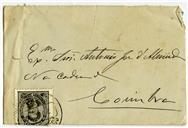 Ex.mo Snr. Antonio José d'Almeida
Na Cadeia de
Coimbra